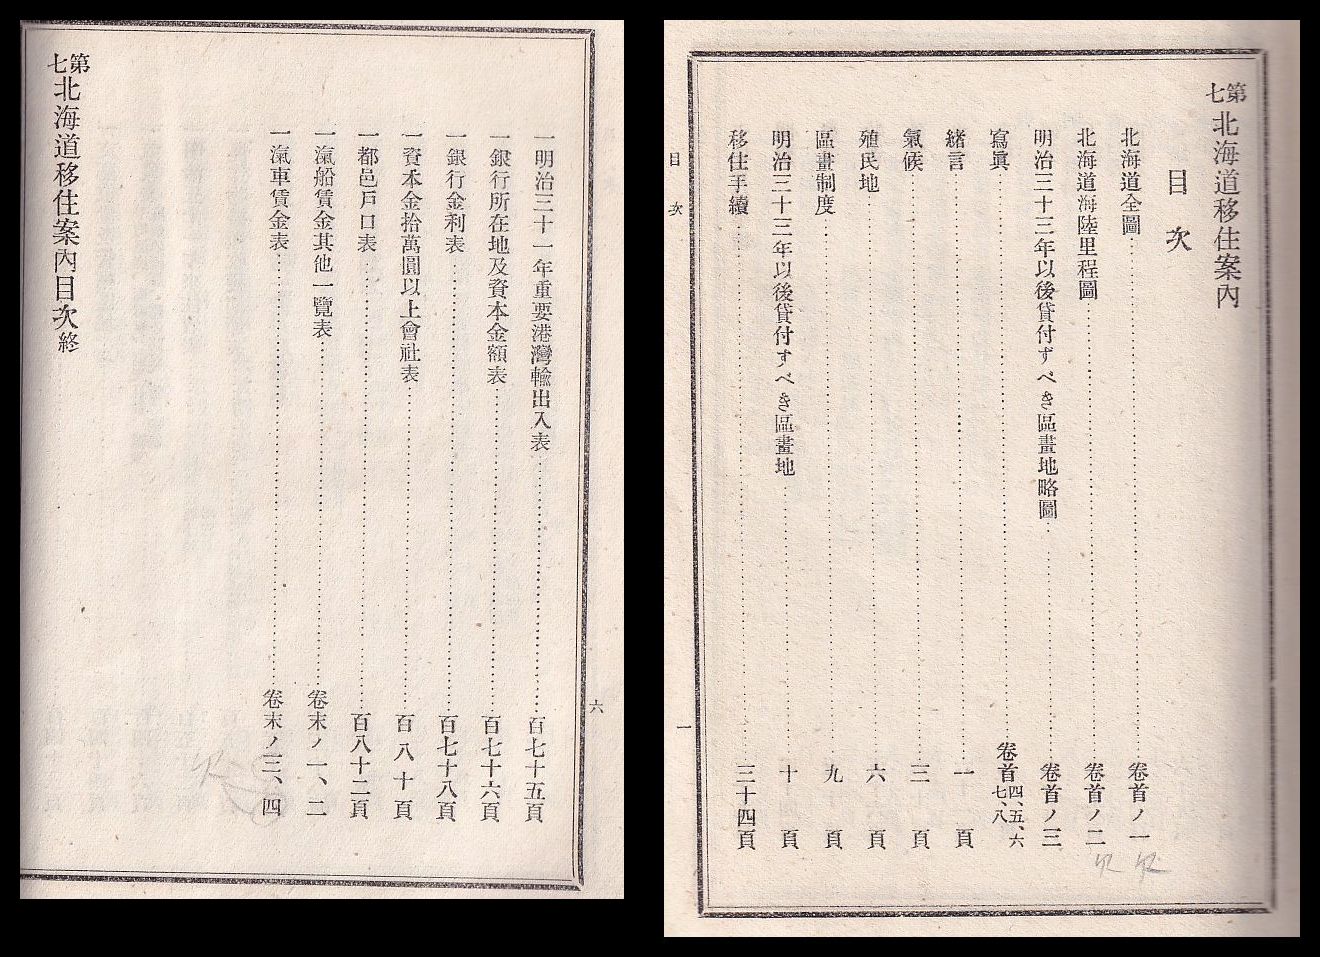 第七北海道移住案内
目次
北海道全圖……卷首ノ一
北海道海陸里程圖……卷首ノ二
明治三十三年以後貸付すべき區畫地略圖……卷首ノ三
寫眞……卷首四、五、六七、八
緒言……一頁
氣候……三頁
殖民地……六頁
區畫制度……九頁
明治三十三年以後貸付すべき區畫地……十頁
移住手續……三十四頁
目次
一
六
一明治三十一年重要港灣輸出入表……百七十五頁
一銀行所在地及資本金額表……百七十六頁
一銀行金利表……百七十八頁
一資本金拾萬圓以上會社表……百八十頁
一都邑戸口表……百八十二頁
一滊船賃金其他一覽表……卷末ノ一、二
一滊車賃金表……卷末ノ三、四
第七北海道移住案内目次終